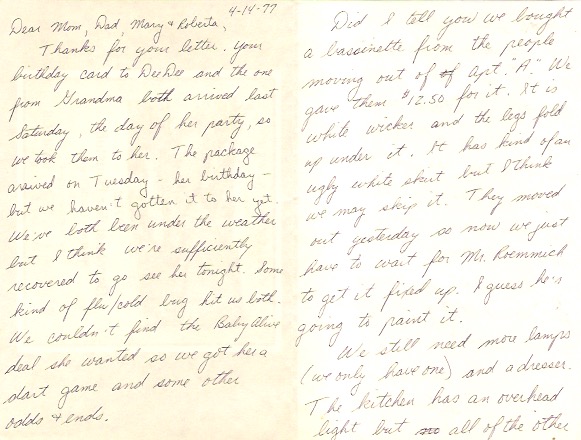 4-14-77
Dear Mom, Dad, Mary & Roberta,
Thanks for your letter. Your
birthday card to DeeDee and the one
from Grandma both arrived last
Saturday, the day of her party, so
we took them to her. The package
arrived on Tuesday - her birthday -
but we haven't gotten it to her yet.
We've both been under the weather
but I think we're sufficiently
recovered to go see her tonight. Some
kind of flu/cold bug hit us both.
We couldn't find the Baby Alive
deal she wanted so we got her a
dart game and some other
odds & ends.
Did I tell you we bought
a bassinette from the people
moving out of of Apt. "A." We
gave them $12.50 for it. It is
white wicker and the legs fold
up under it. It has kind of an
ugly white skirt but I think
we may skip it. They moved
out yesterday so now we just
have to wait for Mr. Roemmich
to get it fixed up. I guess he's
going to paint it.
We still need more lamps
(we only have one) and a dresser.
The kitchen has an overhead
light but no all of the other